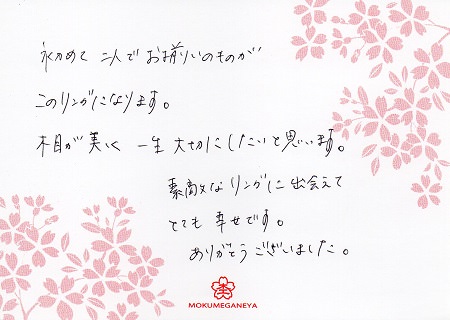 初めて 二人でお揃いのものが
このリングになります。
木目が美しく 一生大切にしたいと思います。
素敵なリングに出会えて
とても幸せです。
ありがとうございました。
MOKUMEGANEYA